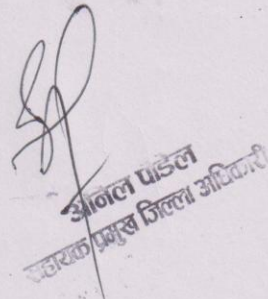 अनिल पौडेल
सहायक प्रमुख जिल्ला अधिकारी